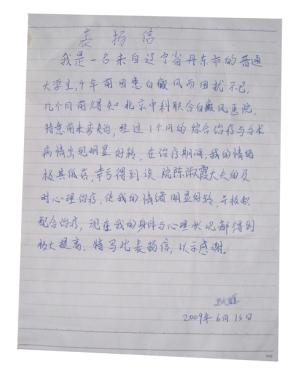 表扬信
我是一名来自辽宁省丹东市的普通
大学生,9年前因患白癜风而困扰不已,
几个月前得知北京中科联合白癜风医院,
特意前来就治,经过1个月的综合治疗与手术
病情出现明显好转,在治疗期间,我的情绪
极其低落,幸亏得到该院陈淑霞大夫的及
时心理治疗,使我的情绪明显好转,并积极
配合治疗,现在我的身体与心理状况都得到
极大提高,特写此表扬信,以示感谢。
2009年6月15日